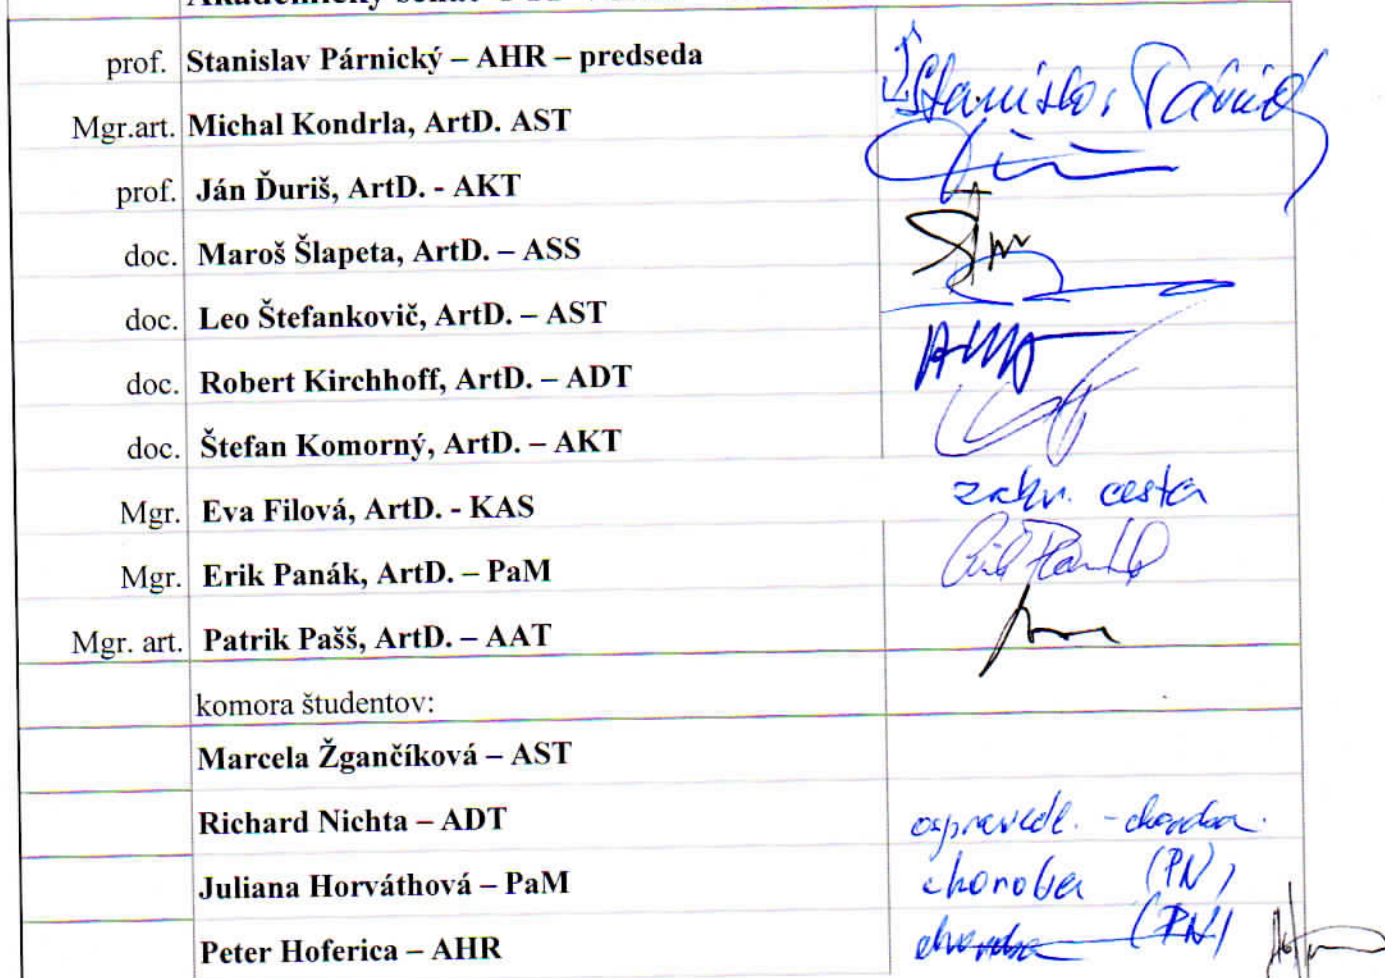 prof. Stanislav Párnický – AHR – predseda
Mgr.art. Michal Kondrla, ArtD. AST
prof. Ján Ďuriš, ArtD. - AKT
doc. Maroš Šlapeta, ArtD. – ASS
doc. Leo Štefankovič, ArtD. – AST
doc. Robert Kirchhoff, ArtD. – ADT
doc. Štefan Komorný, ArtD. – AKT
Mgr. Eva Filová, ArtD. - KAS zahr. cesta
Mgr. Erik Panák, ArtD. – PaM
Mgr. art. Patrik Pašš, ArtD. – AAT
komora študentov:
Marcela Žgančíková – AST
Richard Nichta – ADT ospravedl. - choroba
Juliana Horváthová – PaM choroba (PN)
Peter Hoferica – AHR choroba (PN)